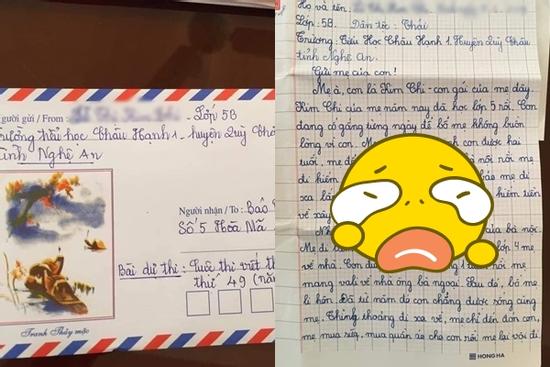 người gửi / From :
Lớp 5B
Trường tiểu học Châu Hạnh 1 - huyện Quỳ Châ
tỉnh Nghệ An
Người nhận / To : Báo
Số 5 Hoà Mã
Bài dự thi : Cuộc thi viết th
thứ 49 (nă
Tranh Thủy mặc
Họ và tên:
Lớp: 5B. Dân tộc: Thái
Trường: Tiểu Học Châu Hạnh 1. Huyện Quỳ Châu
tỉnh Nghệ An.
Gửi mẹ của con!
Mẹ à, con là Kim Chi - con gái của mẹ đây.
Kim Chi của mẹ năm nay đã học lớp 5 rồi. Con
đang cố gắng từng ngày để bố mẹ không buồn
lòng vì con. con được hai
tuổi, mẹ bà nội nói mẹ
đi kiếm bảo mẹ đi
xa kiếm tiền
về xây
của bà nội.
Mẹ đi lớp 4 mẹ
về nhà. Con mẹ
mang vali về nhà ông bà ngoại. Sau đó, bố mẹ
li hôn. Đã từ năm đó con chẳng được sống cùng
mẹ. Thỉnh thoảng đi xa về, mẹ chỉ đến đón con,
mẹ mua sữa, mua quần áo cho con rồi mẹ lại vội đi.
HONG HA